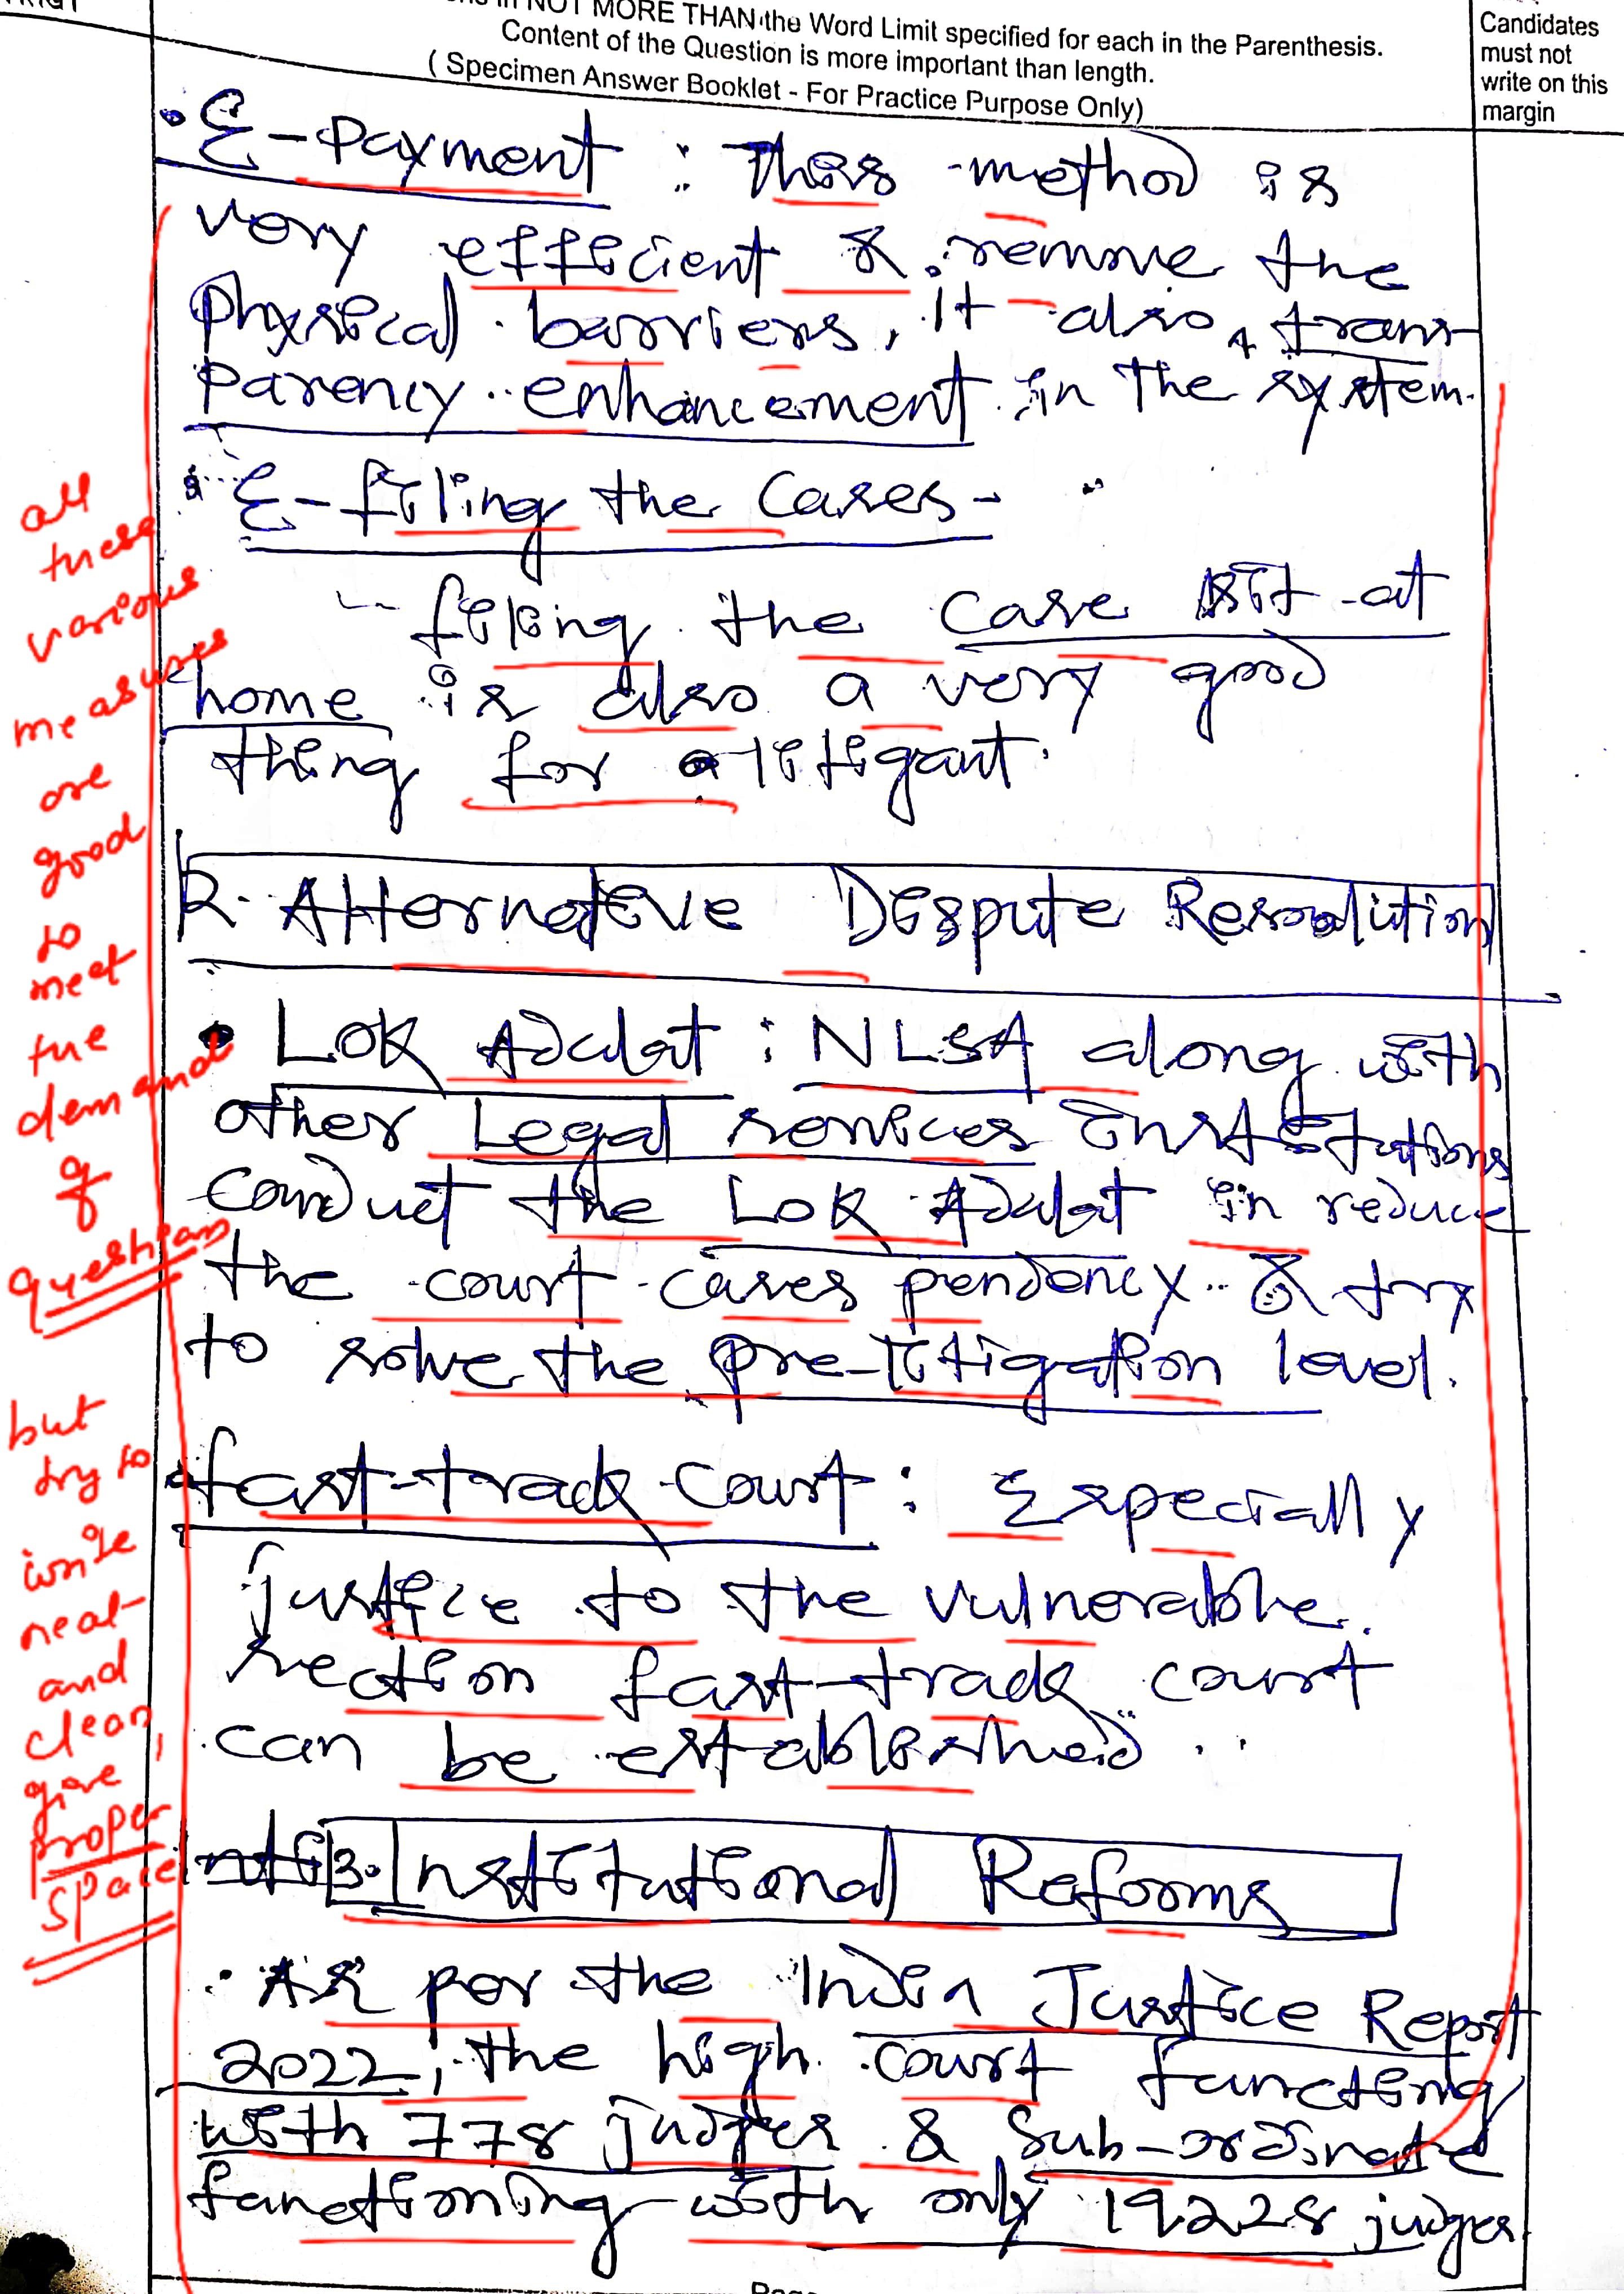 NOT MORE THAN the Word Limit specified for each in the Parenthesis.
Content of the Question is more important than length.
( Specimen Answer Booklet - For Practice Purpose Only)
Candidates
must not
write on this
margin
• E-Payment : This method is
very efficient & remove the
physical barriers, it also trans-
parency enhancement in the system.
• E-filing the Cases-
filing the case sit at
home is also a very good
thing for a litigant.
2. Alternative Dispute Resolution
• Lok Adalat : NLSA along with
other Legal services institutions
conduct the Lok Adalat in reduce
the court cases pendency & try
to solve the pre-litigation level.
• fast-track court : Especially
justice to the vulnerable
section fast-track court
can be established.
3. Institutional Reforms
• As per the India Justice Report
2022, the high court functiong
with 778 judges & Sub-ordinate
functioning with only 19228 judges.
all
these
various
measures
are
good
to
meet
the
demand
of
question
but
try to
write
neat
and
clean,
give
proper
space